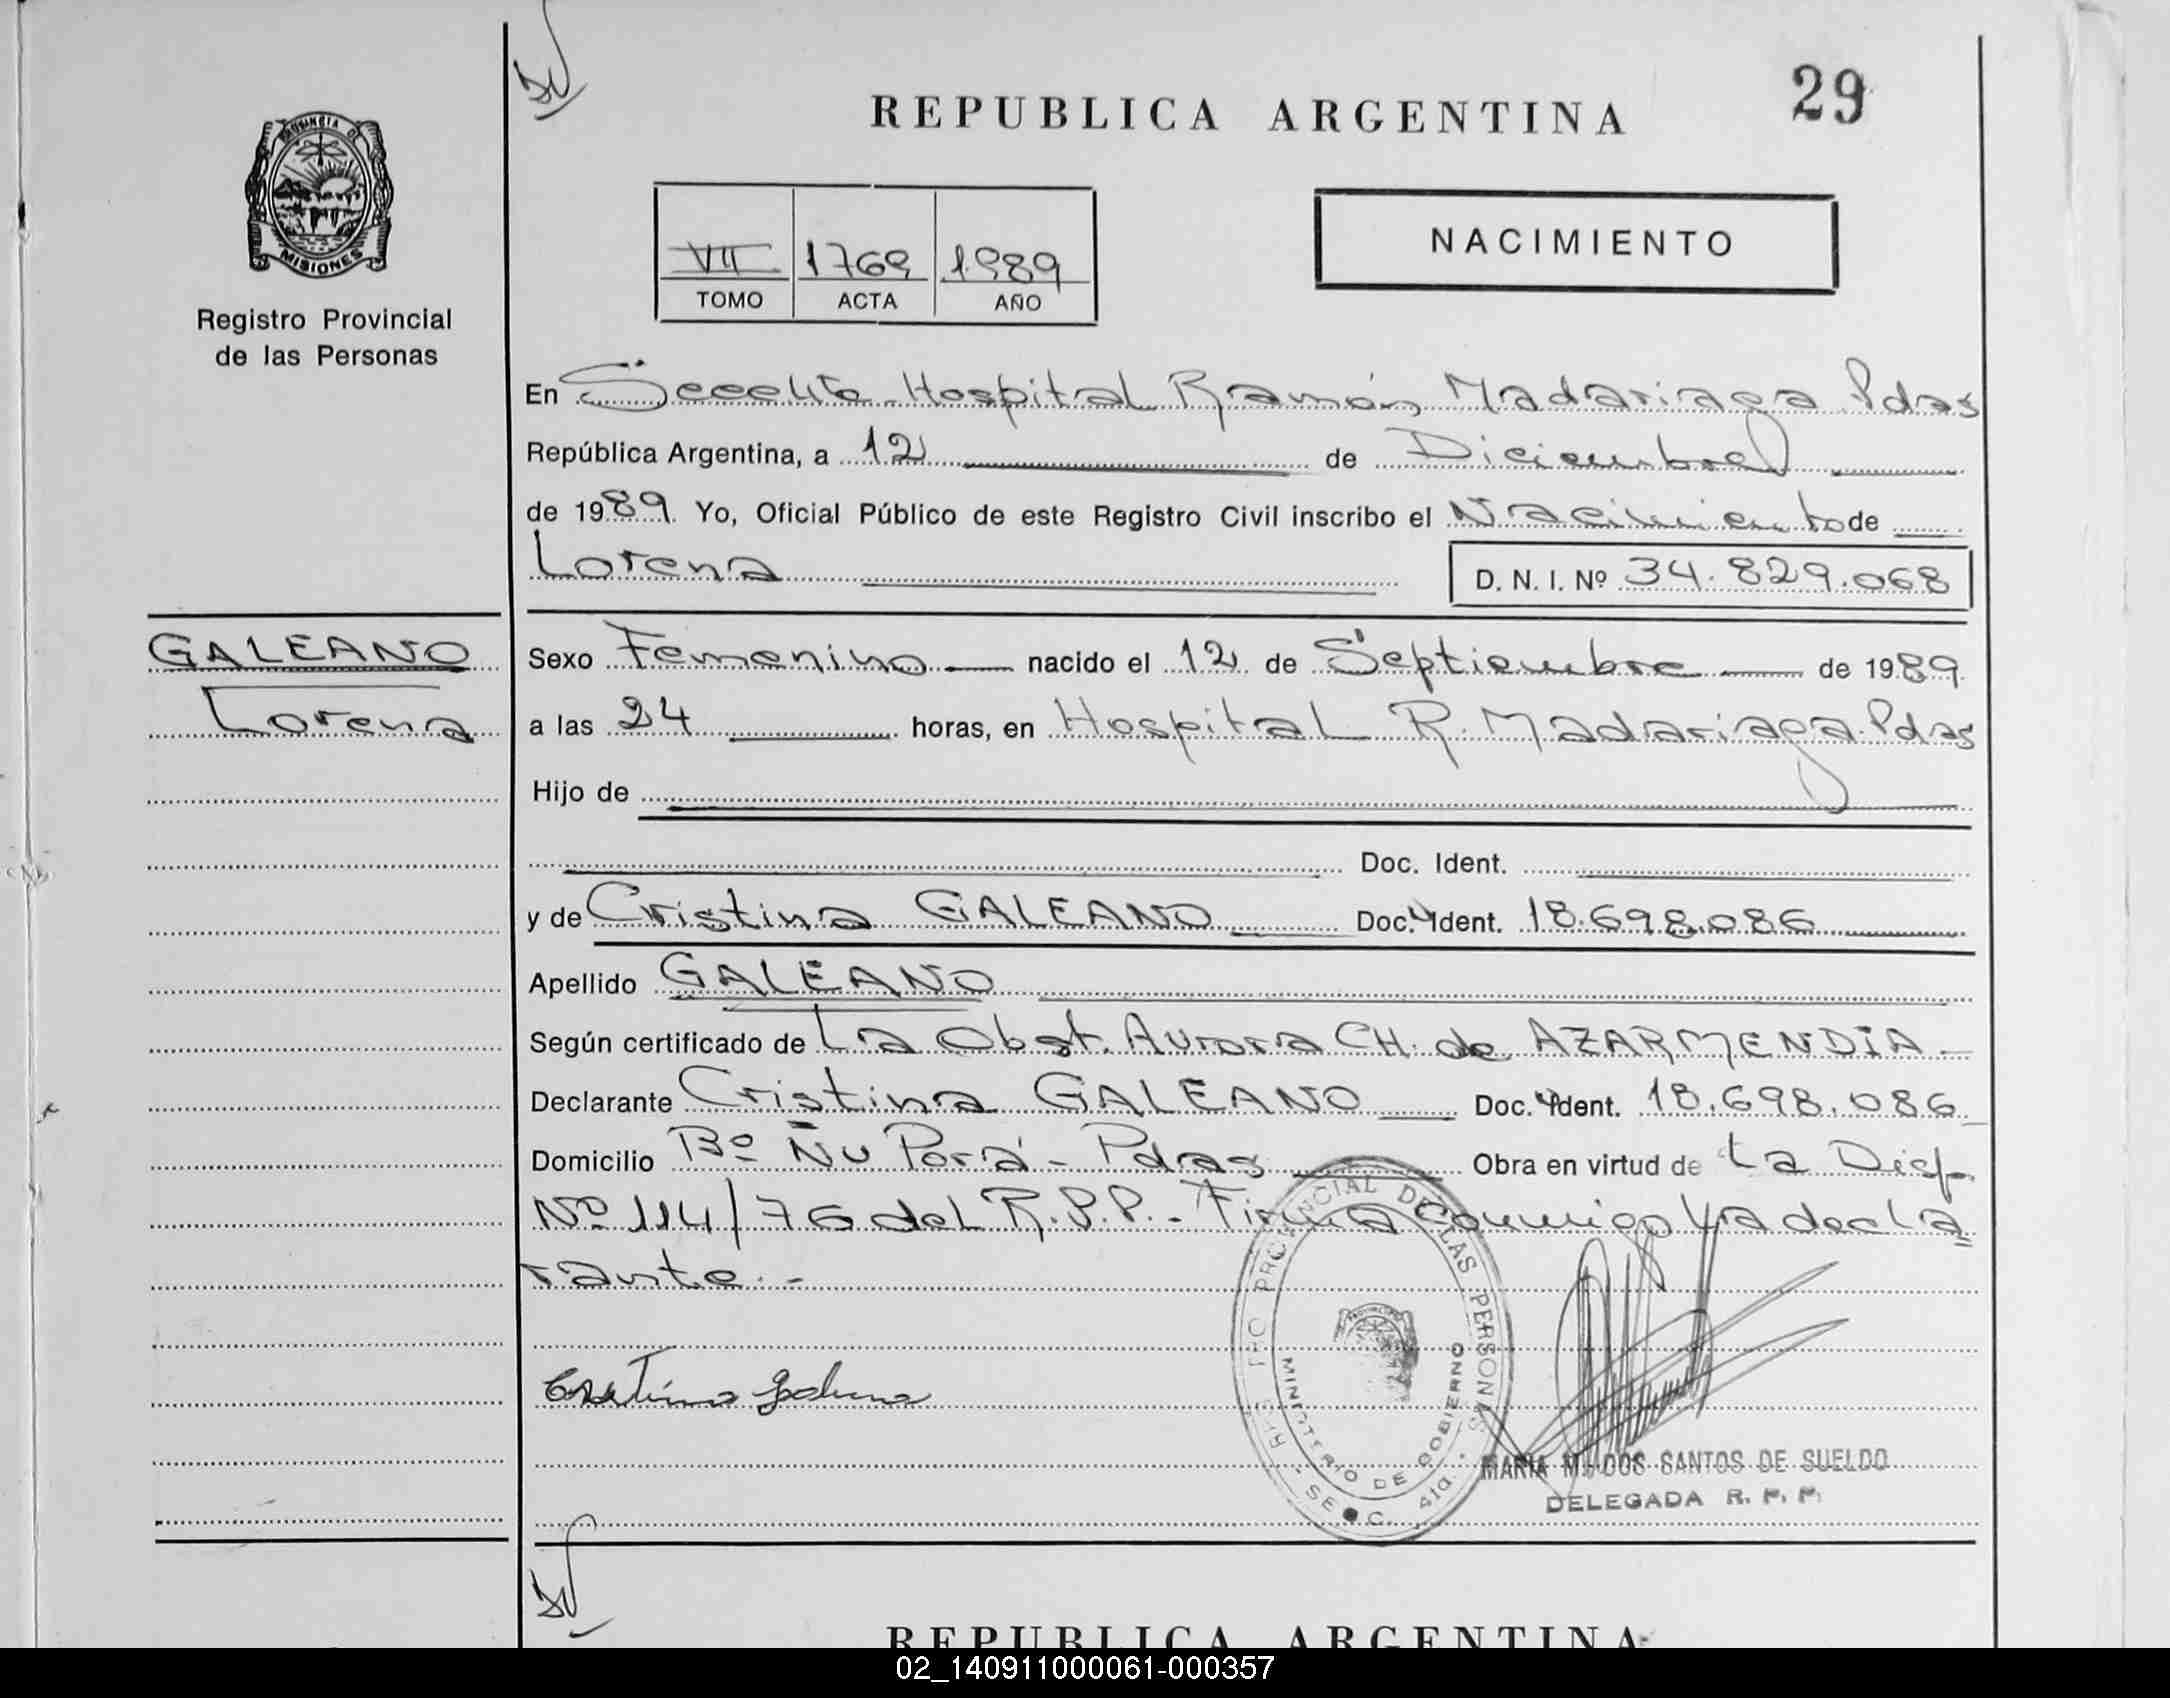 29
REPUBLICA ARGENTINA
PROVINCIA DE
MISIONES
Registro Provincial
de las Personas
VII 1769 1989
TOMO ACTA AÑO
NACIMIENTO
En Hospital Ramón Madariaga Pdas
República Argentina, a 12 de Diciembre
de 1989 Yo, Oficial Público de este Registro Civil inscribo el Nacimiento de
Lorena D. N. I. Nº 34.829.068
GALEANO
Lorena
Sexo Femenino nacido el 12 de Septiembre de 1989
a las 24 horas, en Hospital R. Madariaga. Pdas
Hijo de
Doc. Ident.
y de Cristina GALEANO Doc. Ident. 18.698.086
Apellido GALEANO
Según certificado de La Obst. Aurora CH. de AZARMENDIA
Declarante Cristina GALEANO Doc. Ident. 18.698.086
Domicilio Bº Ñu Porá - Pdas Obra en virtud de La Disp.
Nº 114/76 del R.P.P.- Firma conmigo La decla=
rante.-
PROVINCIAL DE LAS PERSONAS
MINISTERIO DE GOBIERNO
MARIA M. DOS SANTOS DE SUELDO
DELEGADA R. P. P.
REPUBLICA ARGENTINA
02_140911000061-000357